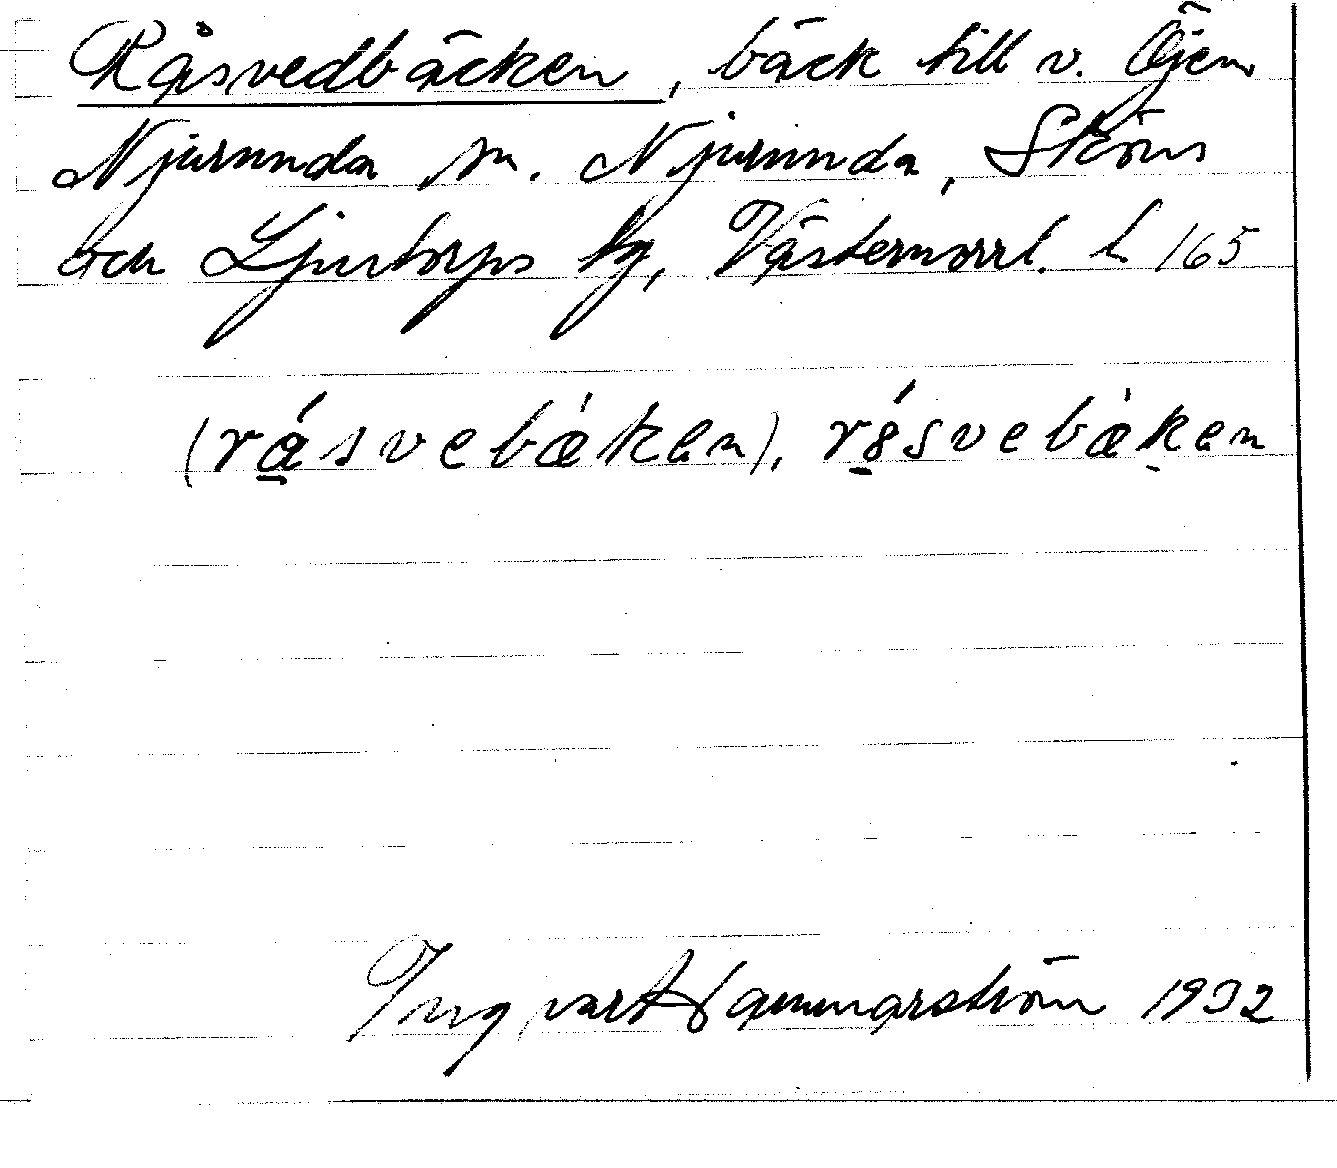 Råsvedbäcken, bäck till v. Öjen
Njurunda sn. Njurunda, Sköns
och Ljustorps tg, Västernorrl. l. 165
(råsvebäken), rósvebäken
Ingvart Hammarström 1932